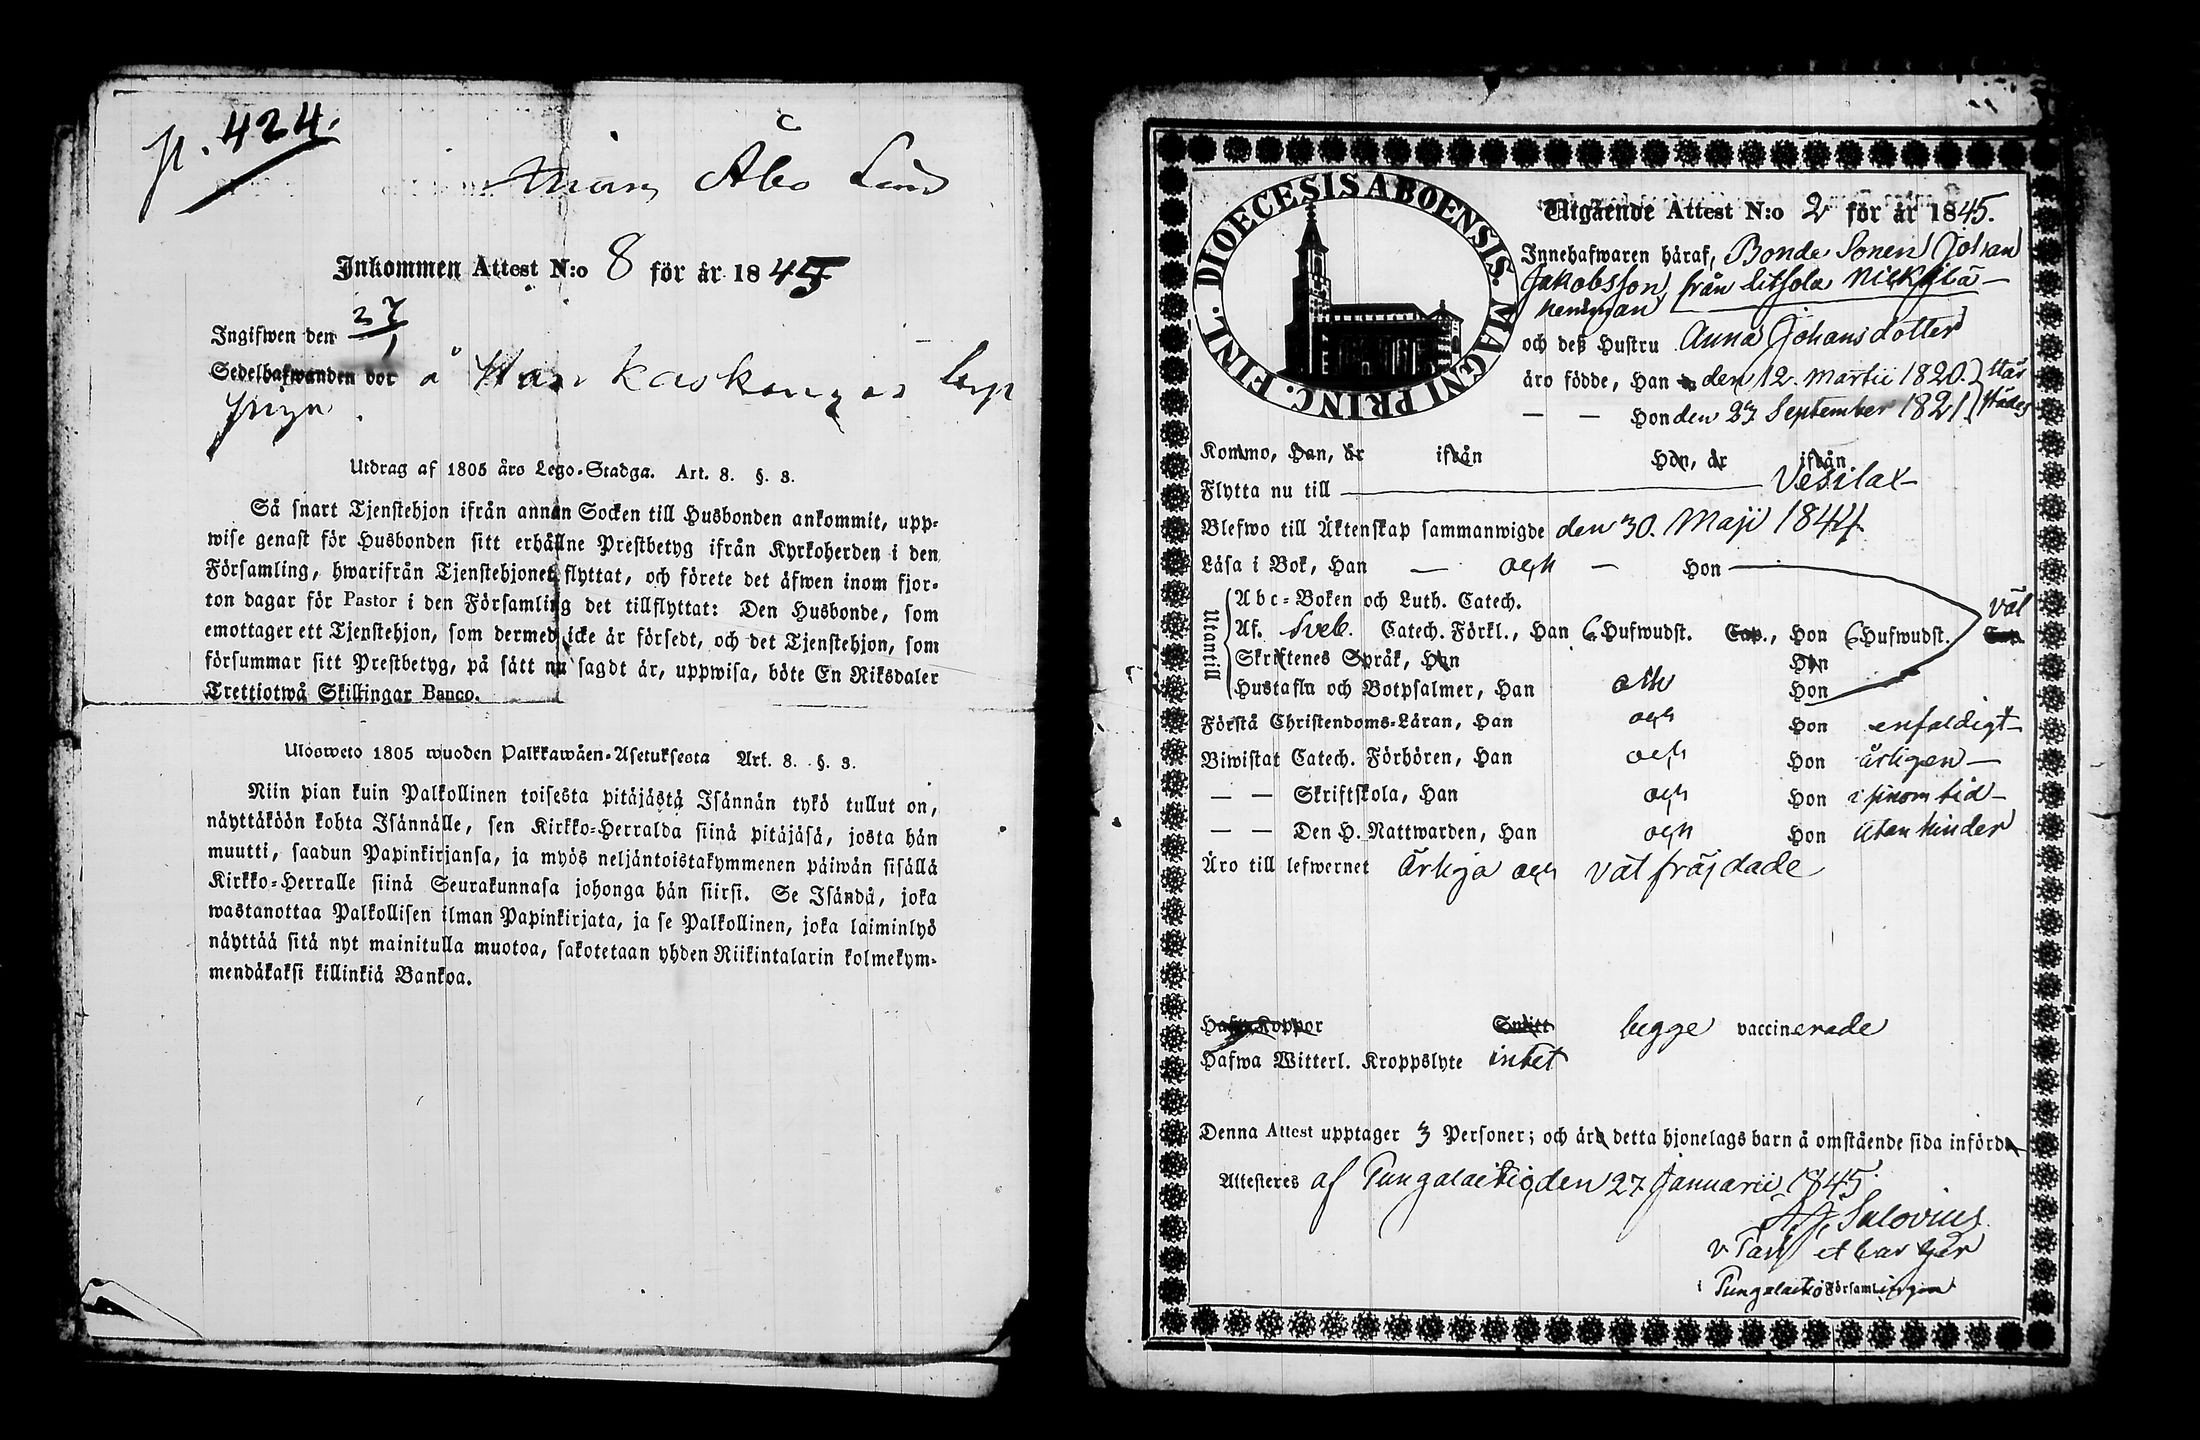 p. 424.
Åbo Län
Inkommen Attest N:o 8 för år 1845
Ingifwen den 27/1
Sedelhafwanden bor å
Utdrag af 1805 års Lego-Stadga. Art. 8. §. 3.
Så snart Tjenstehjon ifrån annan Socken till Husbonden ankommit, upp-
wise genast för Husbonden sitt erhållne Prestbetyg ifrån Kyrkoherden i den
Församling, hwarifrån Tjenstehjonet flyttat, och förete det äfwen inom fjor-
ton dagar för Pastor i den Församling det tillflyttat: Den Husbonde, som
emottager ett Tjenstehjon, som dermed icke är försedt, och det Tjenstehjon, som
försummar sitt Prestbetyg, på sätt nu sagdt är, uppwisa, böte En Riksdaler
Trettiotwå Skillingar Banco.
Ulosweto 1805 wuoden Palkkawäen-Asetuksesta Art. 8. §. 3.
Niin pian kuin Palkollinen toisesta pitäjästä Isännän tykö tullut on,
näyttäköön kohta Isännälle, sen Kirkko-Herralda siinä pitäjäsä, josta hän
muutti, saadun Papinkirjansa, ja myös neljäntoistakymmenen päiwän sisällä
Kirkko-Herralle siinä Seurakunnasa johonga hän siirsi. Se Isändä, joka
wastanottaa Palkollisen ilman Papinkirjata, ja se Palkollinen, joka laiminlyö
näyttää sitä nyt mainitulla muotoa, sakotetaan yhden Riikintalarin kolmekym-
mendäkaksi killinkiä Bankoa.
DIOECESIS ABOENSIS. MAGNI PRINC. FINL.
Utgående Attest N:o 2 för år 1845.
Innehafwaren häraf, Bonde Sonen Johan
Jakobsson från Litsola Nickjilä
hemman
och deß Hustru Anna Johansdotter
äro födde, Han den 12. Martii 1820. Här
— — Hon den 23 September 1821 städes
Kommo, Han, är ifrån Hon, är ifrån
Flytta nu till Vesilax
Blefwo till Äktenskap sammanwigde den 30. Maji 1844
Läsa i Bok, Han — och — Hon
Utantill
Abc-Boken och Luth. Catech.
Af. Sveb. Catech. Förkl., Han 6 Hufwudst. Cap., Hon 6 Hufwudst. Cap. väl
Skriftenes Språk, Han Hon
Hustafla och Botpsalmer, Han och Hon
Förstå Christendoms-Läran, Han och Hon enfaldigt
Biwistat Catech. Förhören, Han och Hon årligen —
— — Skriftskola, Han och Hon i sinom tid —
— — Den H. Nattwarden, Han och Hon utan hinder
Äro till lefwernet ärliga och välfräjdade
Hafwa Koppor Smitt begge vaccinerade
Hafwa Witterl. Kroppslyte intet
Denna Attest upptager 3 Personer; och äro detta hjonelags barn å omstående sida införda
Attesteres af Pungalaitio, den 27 Januarii 1845.
Salovius
v Past
i Pungalaitio Församlingen